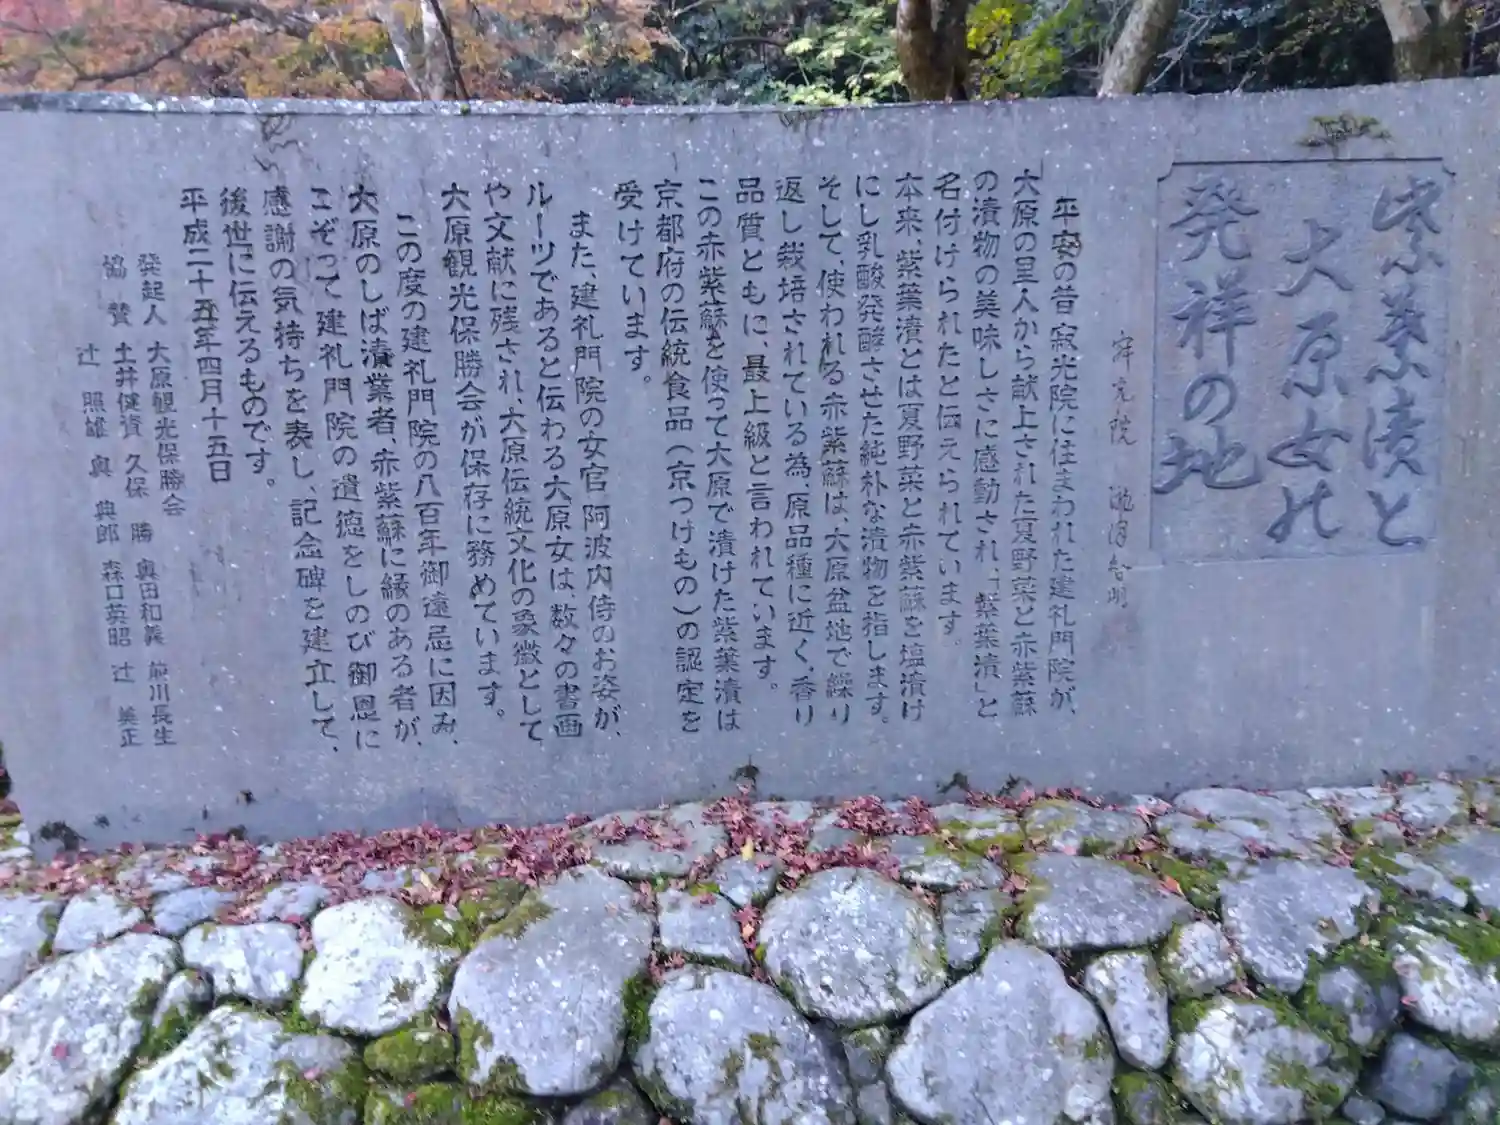 紫葉漬と
大原女の
発祥の地
寂光院
平安の昔寂光院に住まわれた建礼門院が、
大原の里人から献上された夏野菜と赤紫蘇
の漬物の美味しさに感動され、「紫葉漬」と
名付けられたと伝えられています。
本来、紫葉漬とは夏野菜と赤紫蘇を塩漬け
にし乳酸発酵させた純朴な漬物を指します。
そして、使われる赤紫蘇は、大原盆地で繰り
返し栽培されている為、原品種に近く、香り
品質ともに、最上級と言われています。
この赤紫蘇を使って大原で漬けた紫葉漬は
京都府の伝統食品(京つけもの)の認定を
受けています。
また、建礼門院の女官阿波内侍のお姿が、
ルーツであると伝わる大原女は数々の書画
や文献に残され、大原伝統文化の象徴として
大原観光保勝会が保存に務めています。
この度の建礼門院の八百年御遠忌に因み、
大原のしば漬業者、赤紫蘇に縁のある者が、
こぞって建礼門院の遺徳をしのび御恩に
感謝の気持ちを表し、記念碑を建立して、
後世に伝えるものです。
平成二十五年四月十五日
発起人 大原観光保勝会
協賛 土井健資 久保勝 奥田和義 前川長生
辻照雄 奥典郎 森口英昭 辻美正